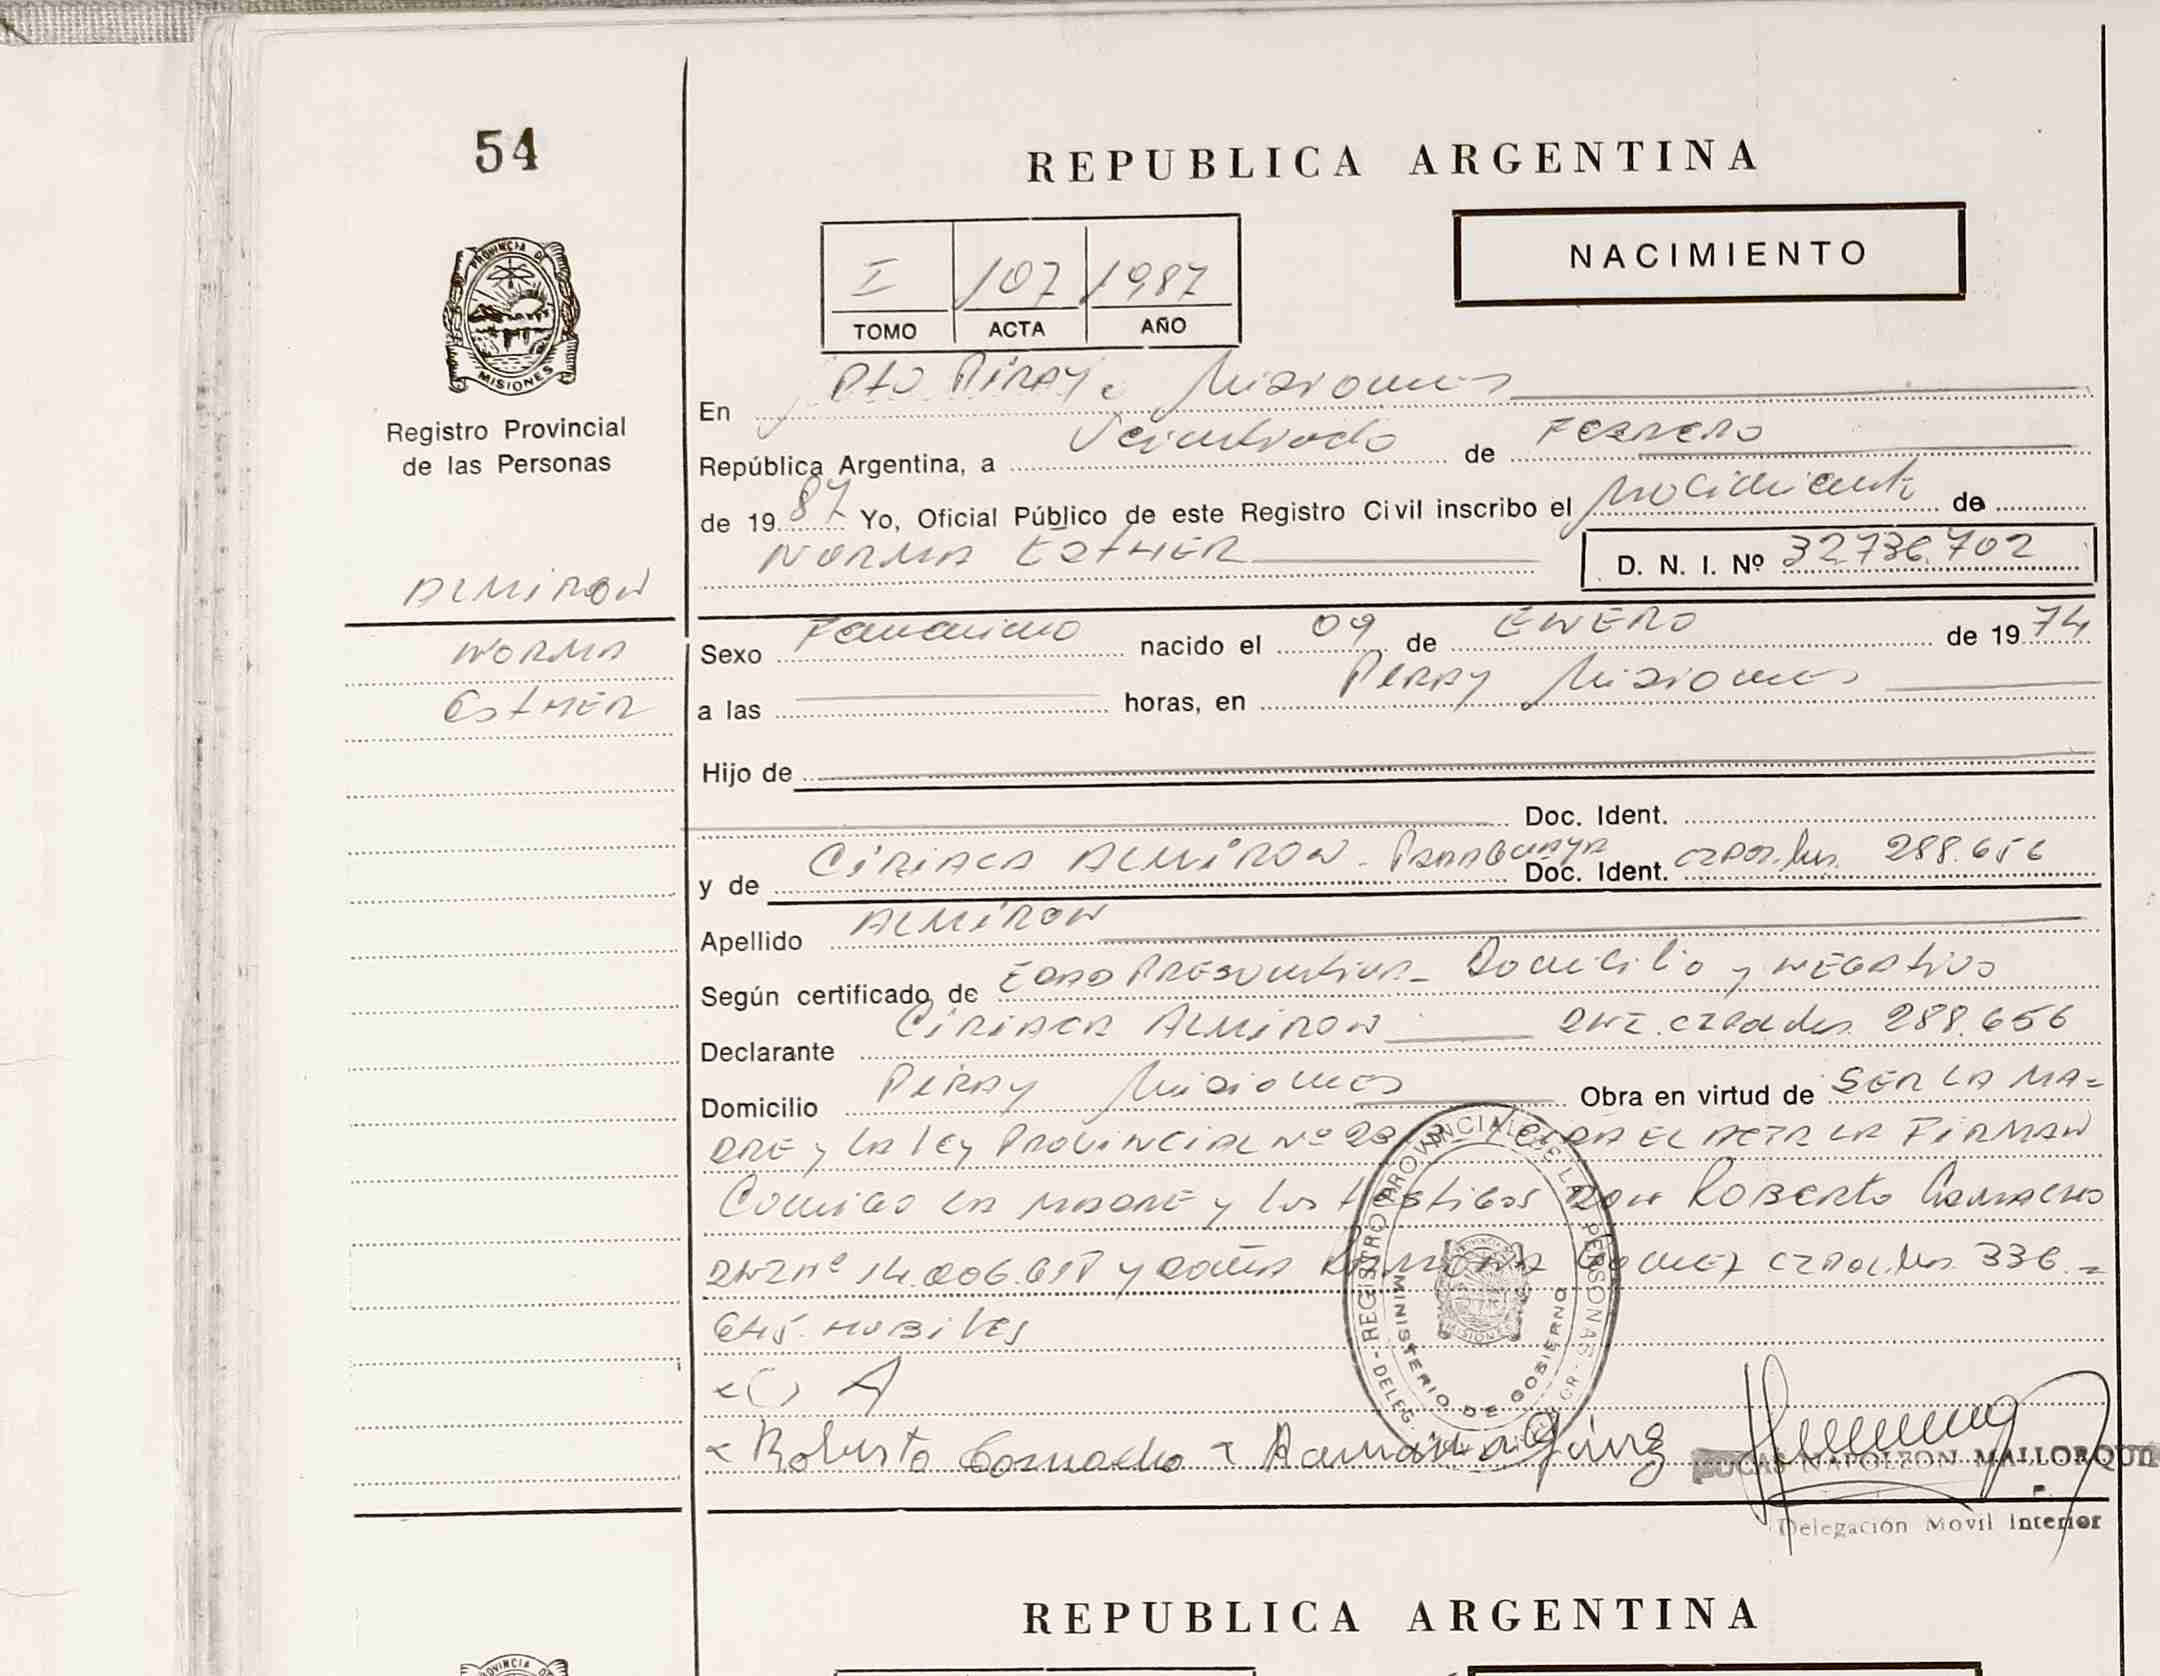 54
REPUBLICA ARGENTINA
NACIMIENTO
I 107 1987
TOMO ACTA AÑO
PROVINCIA DE
MISIONES
Registro Provincial
de las Personas
En Pto Piray, Misiones
República Argentina, a Veintiocho de Febrero
de 1987 Yo, Oficial Público de este Registro Civil inscribo el Nacimiento de
NORMA ESTHER D. N. I. Nº 32736.702
ALMIRON
NORMA
ESTHER
Sexo Femenino nacido el 09 de ENERO de 1974
a las horas, en Piray Misiones
Hijo de
Doc. Ident.
y de CIRIACA ALMIRON - Paraguaya Doc. Ident. 288.656
Apellido ALMIRON
Según certificado de EDAD PRESUNTIVA - Domicilio y NEGATIVO
Declarante CIRIACA ALMIRON 288.656
Domicilio Piray Misiones Obra en virtud de SER LA MA=
DRE y LA LEY PROVINCIAL Nº EL ACTA LA FIRMAN
Conmigo LA MADRE y los testigos Don Roberto Camacho
DNI Nº 14.006. y doña Ramona Gomez 336.=
645. HABILES
Roberto Camacho Ramona
LUCAS NAPOLEON MALLORQUIN
Delegación Movil Interior
REGISTRO PROVINCIAL DE LAS PERSONAS
MINISTERIO DE GOBIERNO
PROVINCIA
MISIONES
REPUBLICA ARGENTINA
PROVINCIA DE